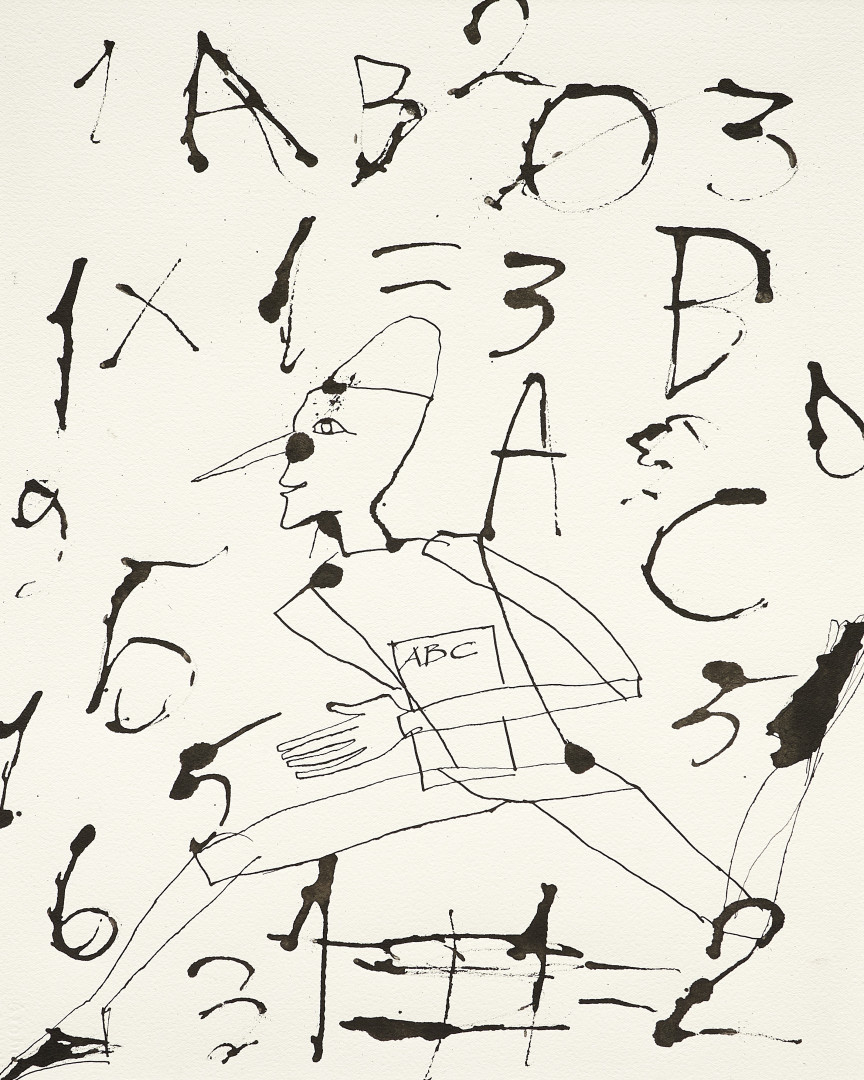 1 A B 2 0 3
1 x 1 = 3 B
A
a C
Б
ABC
5
5
1
6
3 1 + 1 = 2